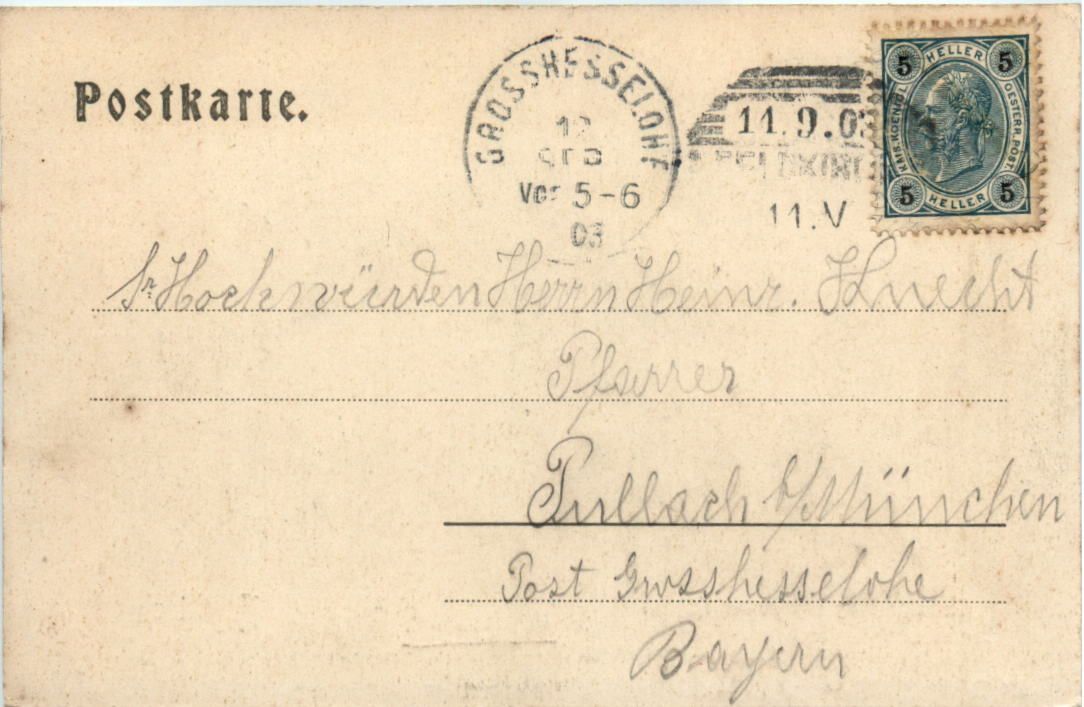 Postkarte.
GROSSHESSELOHE
12
SEP
Vor 5-6
03
11.9.03
FELDKIRCH
11.V
5 HELLER 5
KAIS. KOENIGL. OESTERR. POST.
5 HELLER 5
Sr. Hochwürden Herrn Heinr. Knecht
Pfarrer
Pullach b/München
Post Grosshesselohe
Bayern